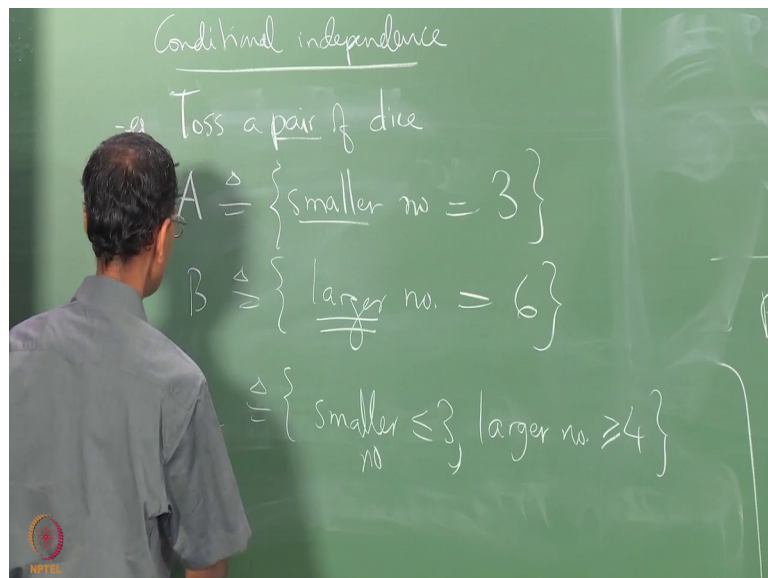 Conditional independence
Toss a pair of dice
A ≜ { smaller no = 3 }
B ≜ { larger no. = 6 }
≜ { smaller no ≤ 3, larger no. ≥ 4 }
NPTEL